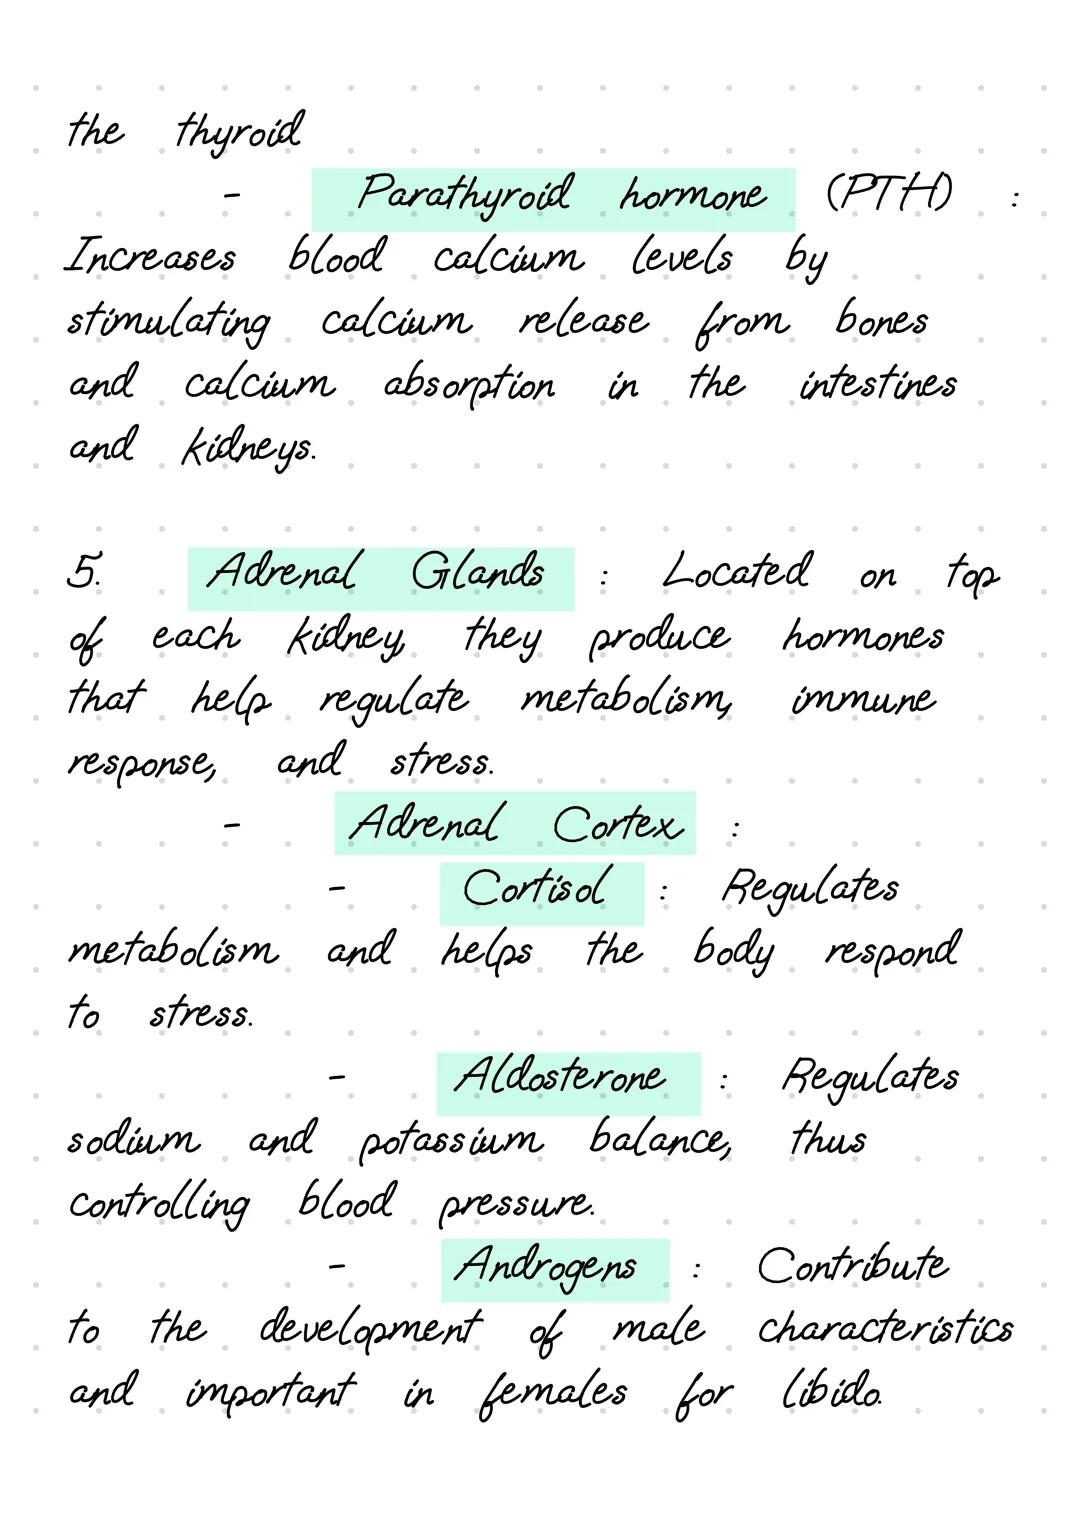 the thyroid
- Parathyroid hormone (PTH) :
Increases blood calcium levels by
stimulating calcium release from bones
and calcium absorption in the intestines
and kidneys.
5. Adrenal Glands : Located on top
of each kidney, they produce hormones
that help regulate metabolism, immune
response, and stress.
- Adrenal Cortex :
- Cortisol : Regulates
metabolism and helps the body respond
to stress.
- Aldosterone : Regulates
sodium and potassium balance, thus
controlling blood pressure.
- Androgens : Contribute
to the development of male characteristics
and important in females for libido.